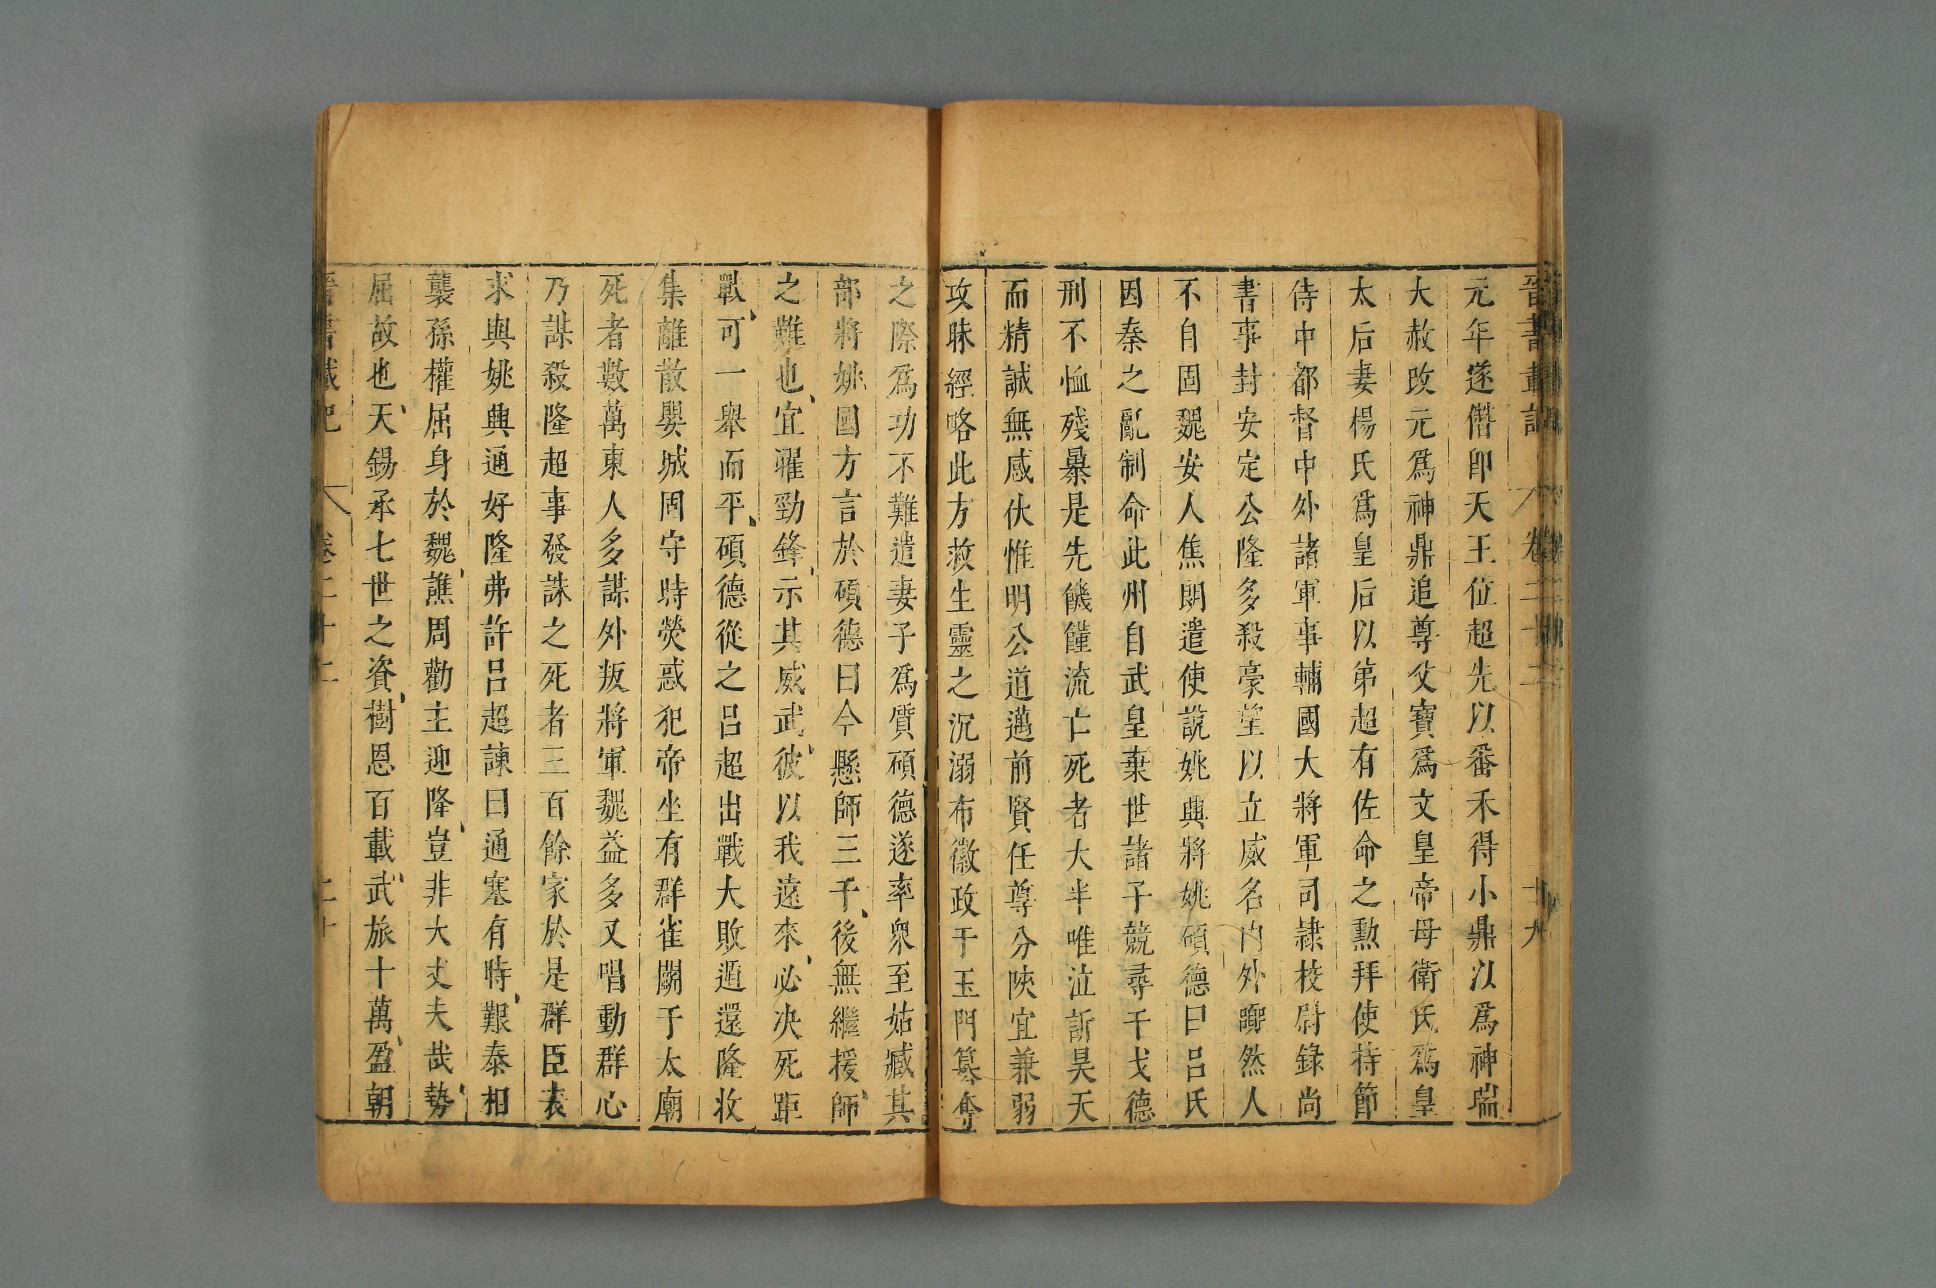 晉書載記 卷二十二 十九
元年遂僭卽天王位超先以番禾得小鼎以爲神瑞
大赦改元爲神鼎追尊父寶爲文皇帝母衛氏爲皇
太后妻楊氏爲皇后以弟超有佐命之勲拜使持節
侍中都督中外諸軍事輔國大將軍司隷校尉錄尚
書事封安定公隆多殺豪望以立威名内外囂然人
不自固魏安人焦朗遣使說姚興將姚碩德曰呂氏
因秦之亂制命此州自武皇棄世諸子競尋干戈德
刑不恤殘暴是先饑饉流亡死者大半唯泣訴昊天
而精誠無感伏惟明公道邁前賢任尊分陝宜兼弱
攻昧經略此方救生靈之沉溺布徽政于玉門簒奪
之際爲功不難遣妻子爲質碩德遂率衆至姑臧其
部將姚國方言於碩德曰今懸師三千後無繼援師
之難也宜曜勁鋒示其威武彼以我遠來必决死距
戰可一舉而平碩德從之呂超出戰大敗遁還隆收
集離散嬰城固守時熒惑犯帝坐有群雀鬬于太廟
死者數萬東人多謀外叛將軍魏益多又唱動群心
乃謀殺隆超事發誅之死者三百餘家於是群臣表
求與姚興通好隆弗許呂超諫曰通塞有時艱泰相
襲孫權屈身於魏譙周勸主迎降豈非大丈夫哉勢
屈故也天錫承七世之資樹恩百載武旅十萬盈朝
晉書載記 卷二十二 二十